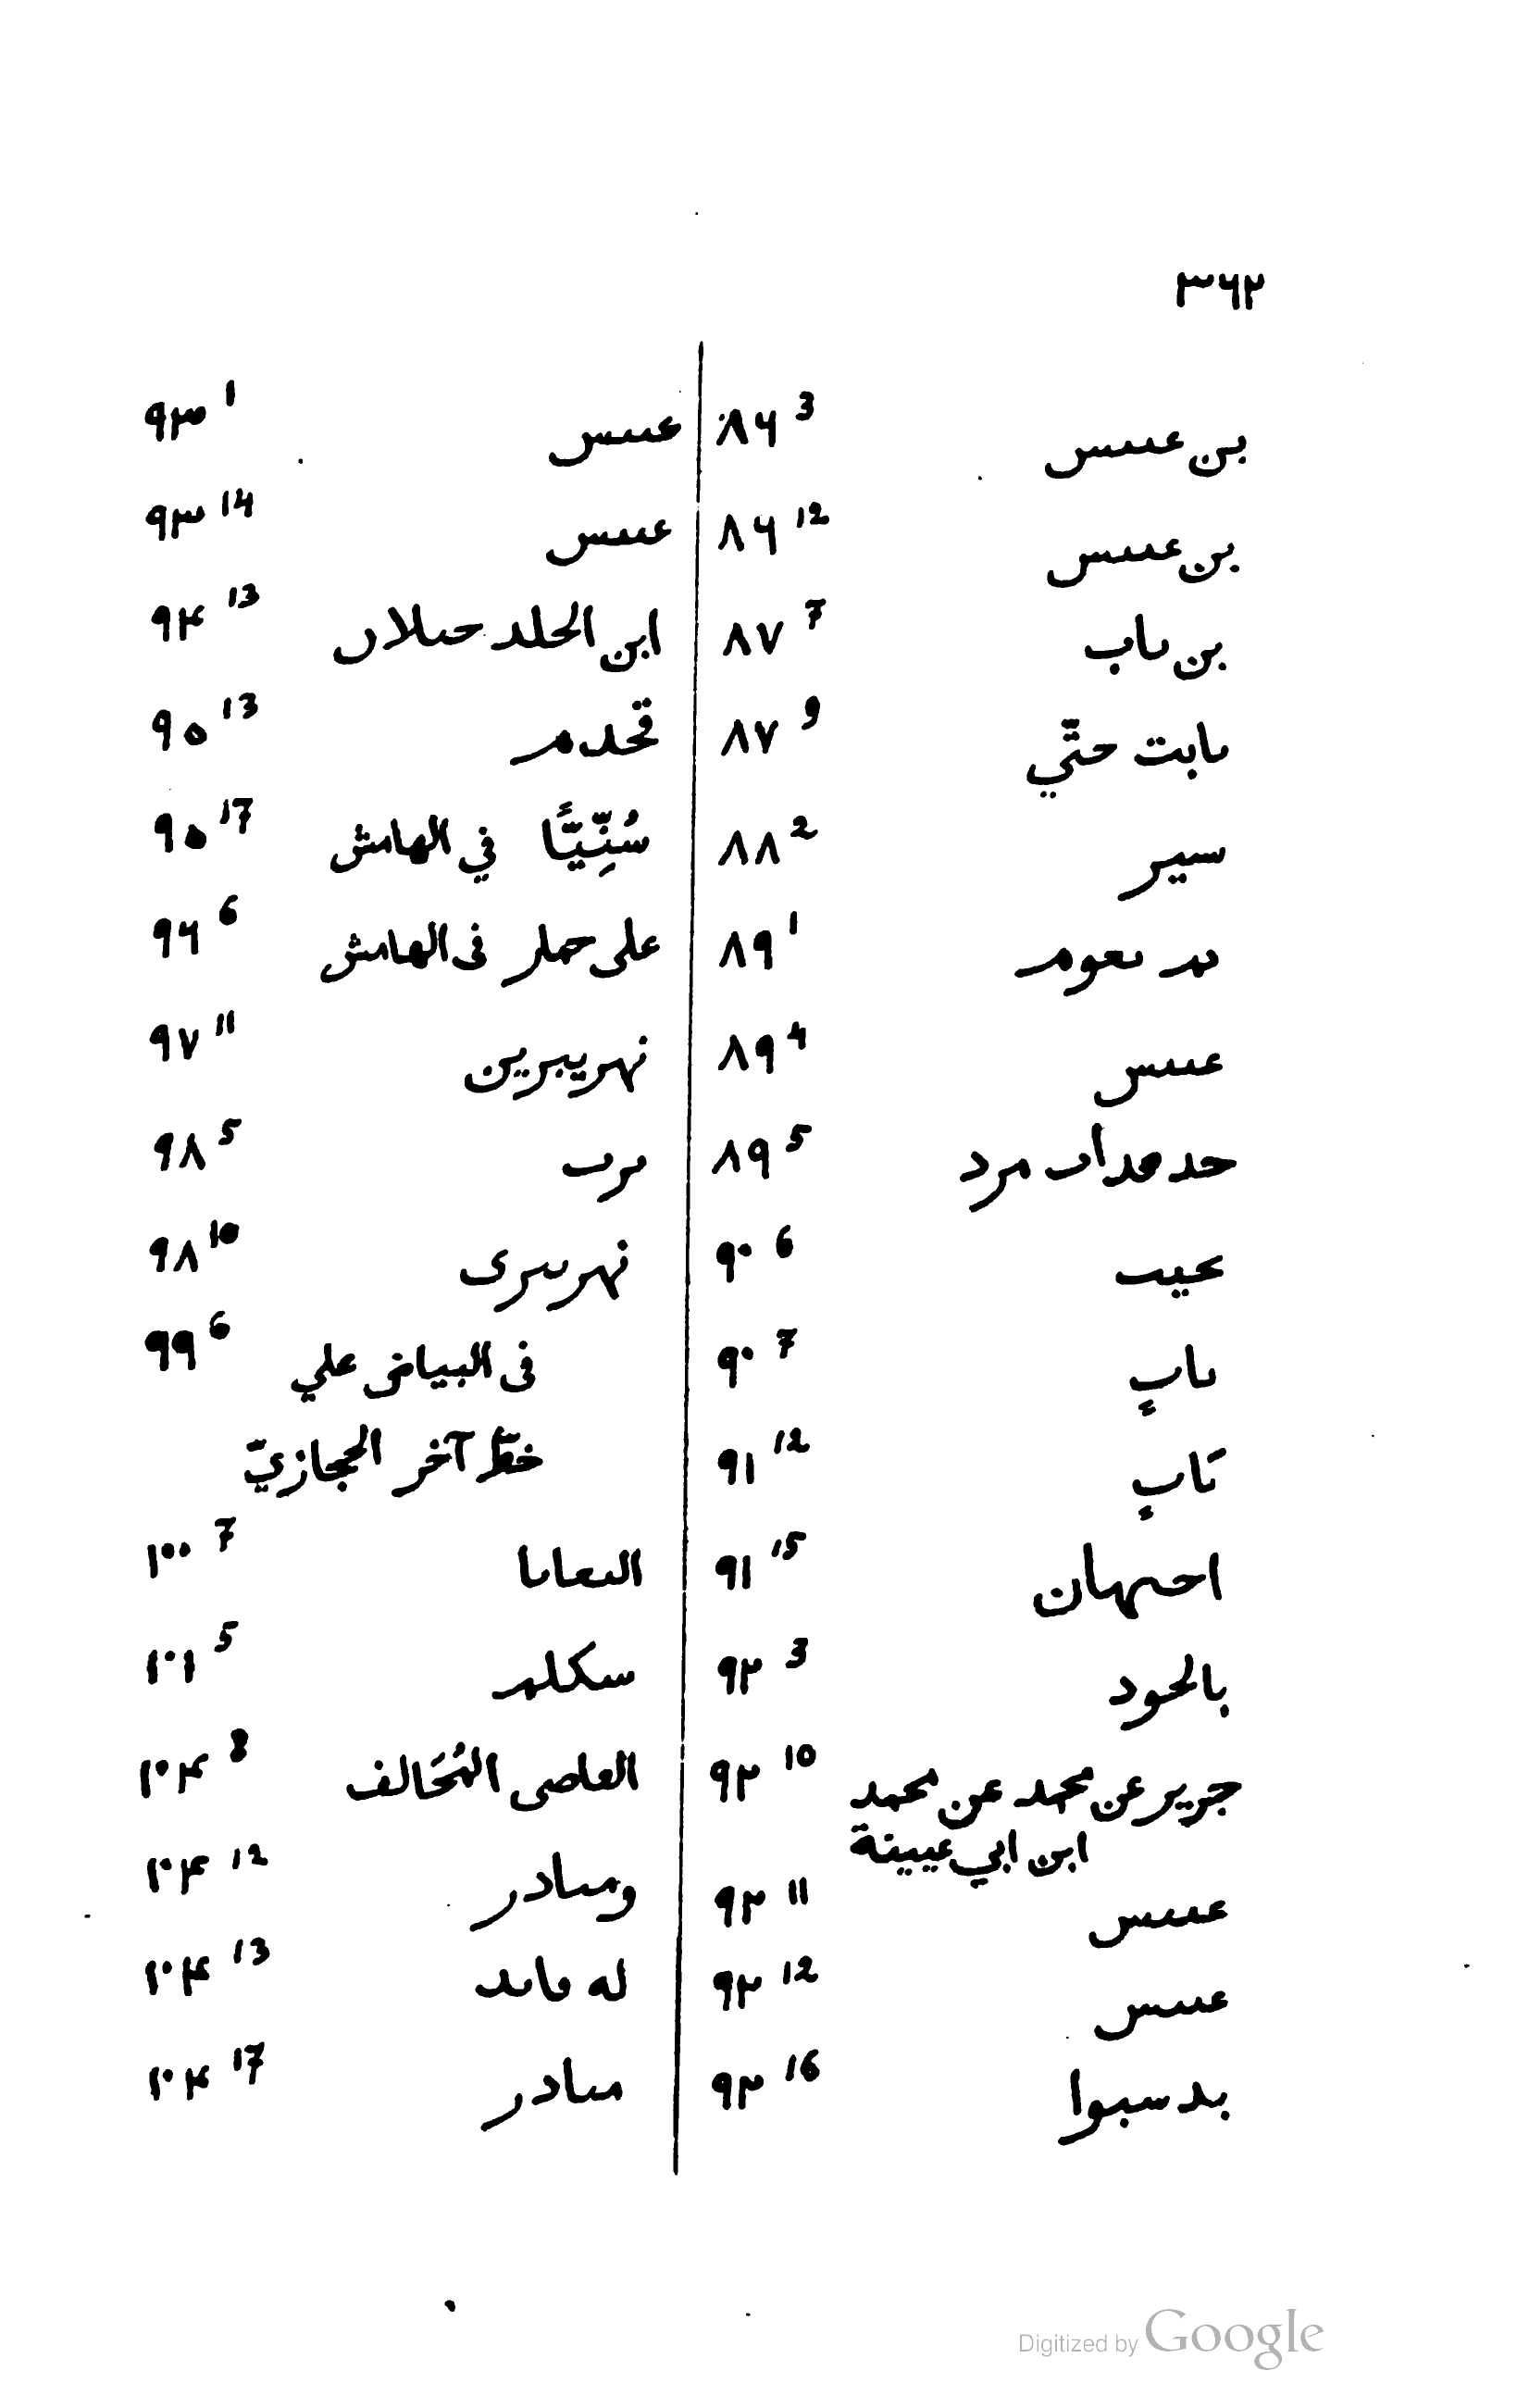 ٣٦٢
بن عٮٮس ٨٦ 3
بن عٮٮس ٨٦ 12
بن ٮاب ٨٧ 7
ٮابت حتّي ٨٧ 9
سير ٨٨ 2
ٮعوم ٨٩ 1
عٮٮس ٨٩ 4
حد هداد مرد ٨٩ 5
عيٮ ٩٠ 6
ٮابٍ ٩٠ 7
تابٍ ٩١ 12
احٮهان ٩١ 15
بالحود ٩٢ 3
جرير عن محمد عن محمد ٩٢ 10
ابن ابي عيينة
عٮٮس ٩٢ 11
عٮٮس ٩٢ 12
بد سبوا ٩٢ 16
عٮٮس ٩٣ 1
عٮٮس ٩٣ 14
ابن الحلد حٮلاں ٩٤ 13
قحدم ٩٥ 13
سُنِّيًّا في الهامش ٩٥ 17
على حمار فى الهامش ٩٦ 6
نهر يبرين ٩٧ 11
ٮرٮ ٩٨ 5
نهر ٮٮرى ٩٨ 10
فى البياض علي ٩٩ 6
خطّ آخر الحجازيّ
الٮعاٮا ١٠٠ 7
سكلهر ١٠١ 5
العاصى المُخَالف ١٠٤ 8
ومٮادر ١٠٤ 12
له ڡاٮد ١٠٤ 13
مٮادر ١٠٤ 17
Digitized by Google